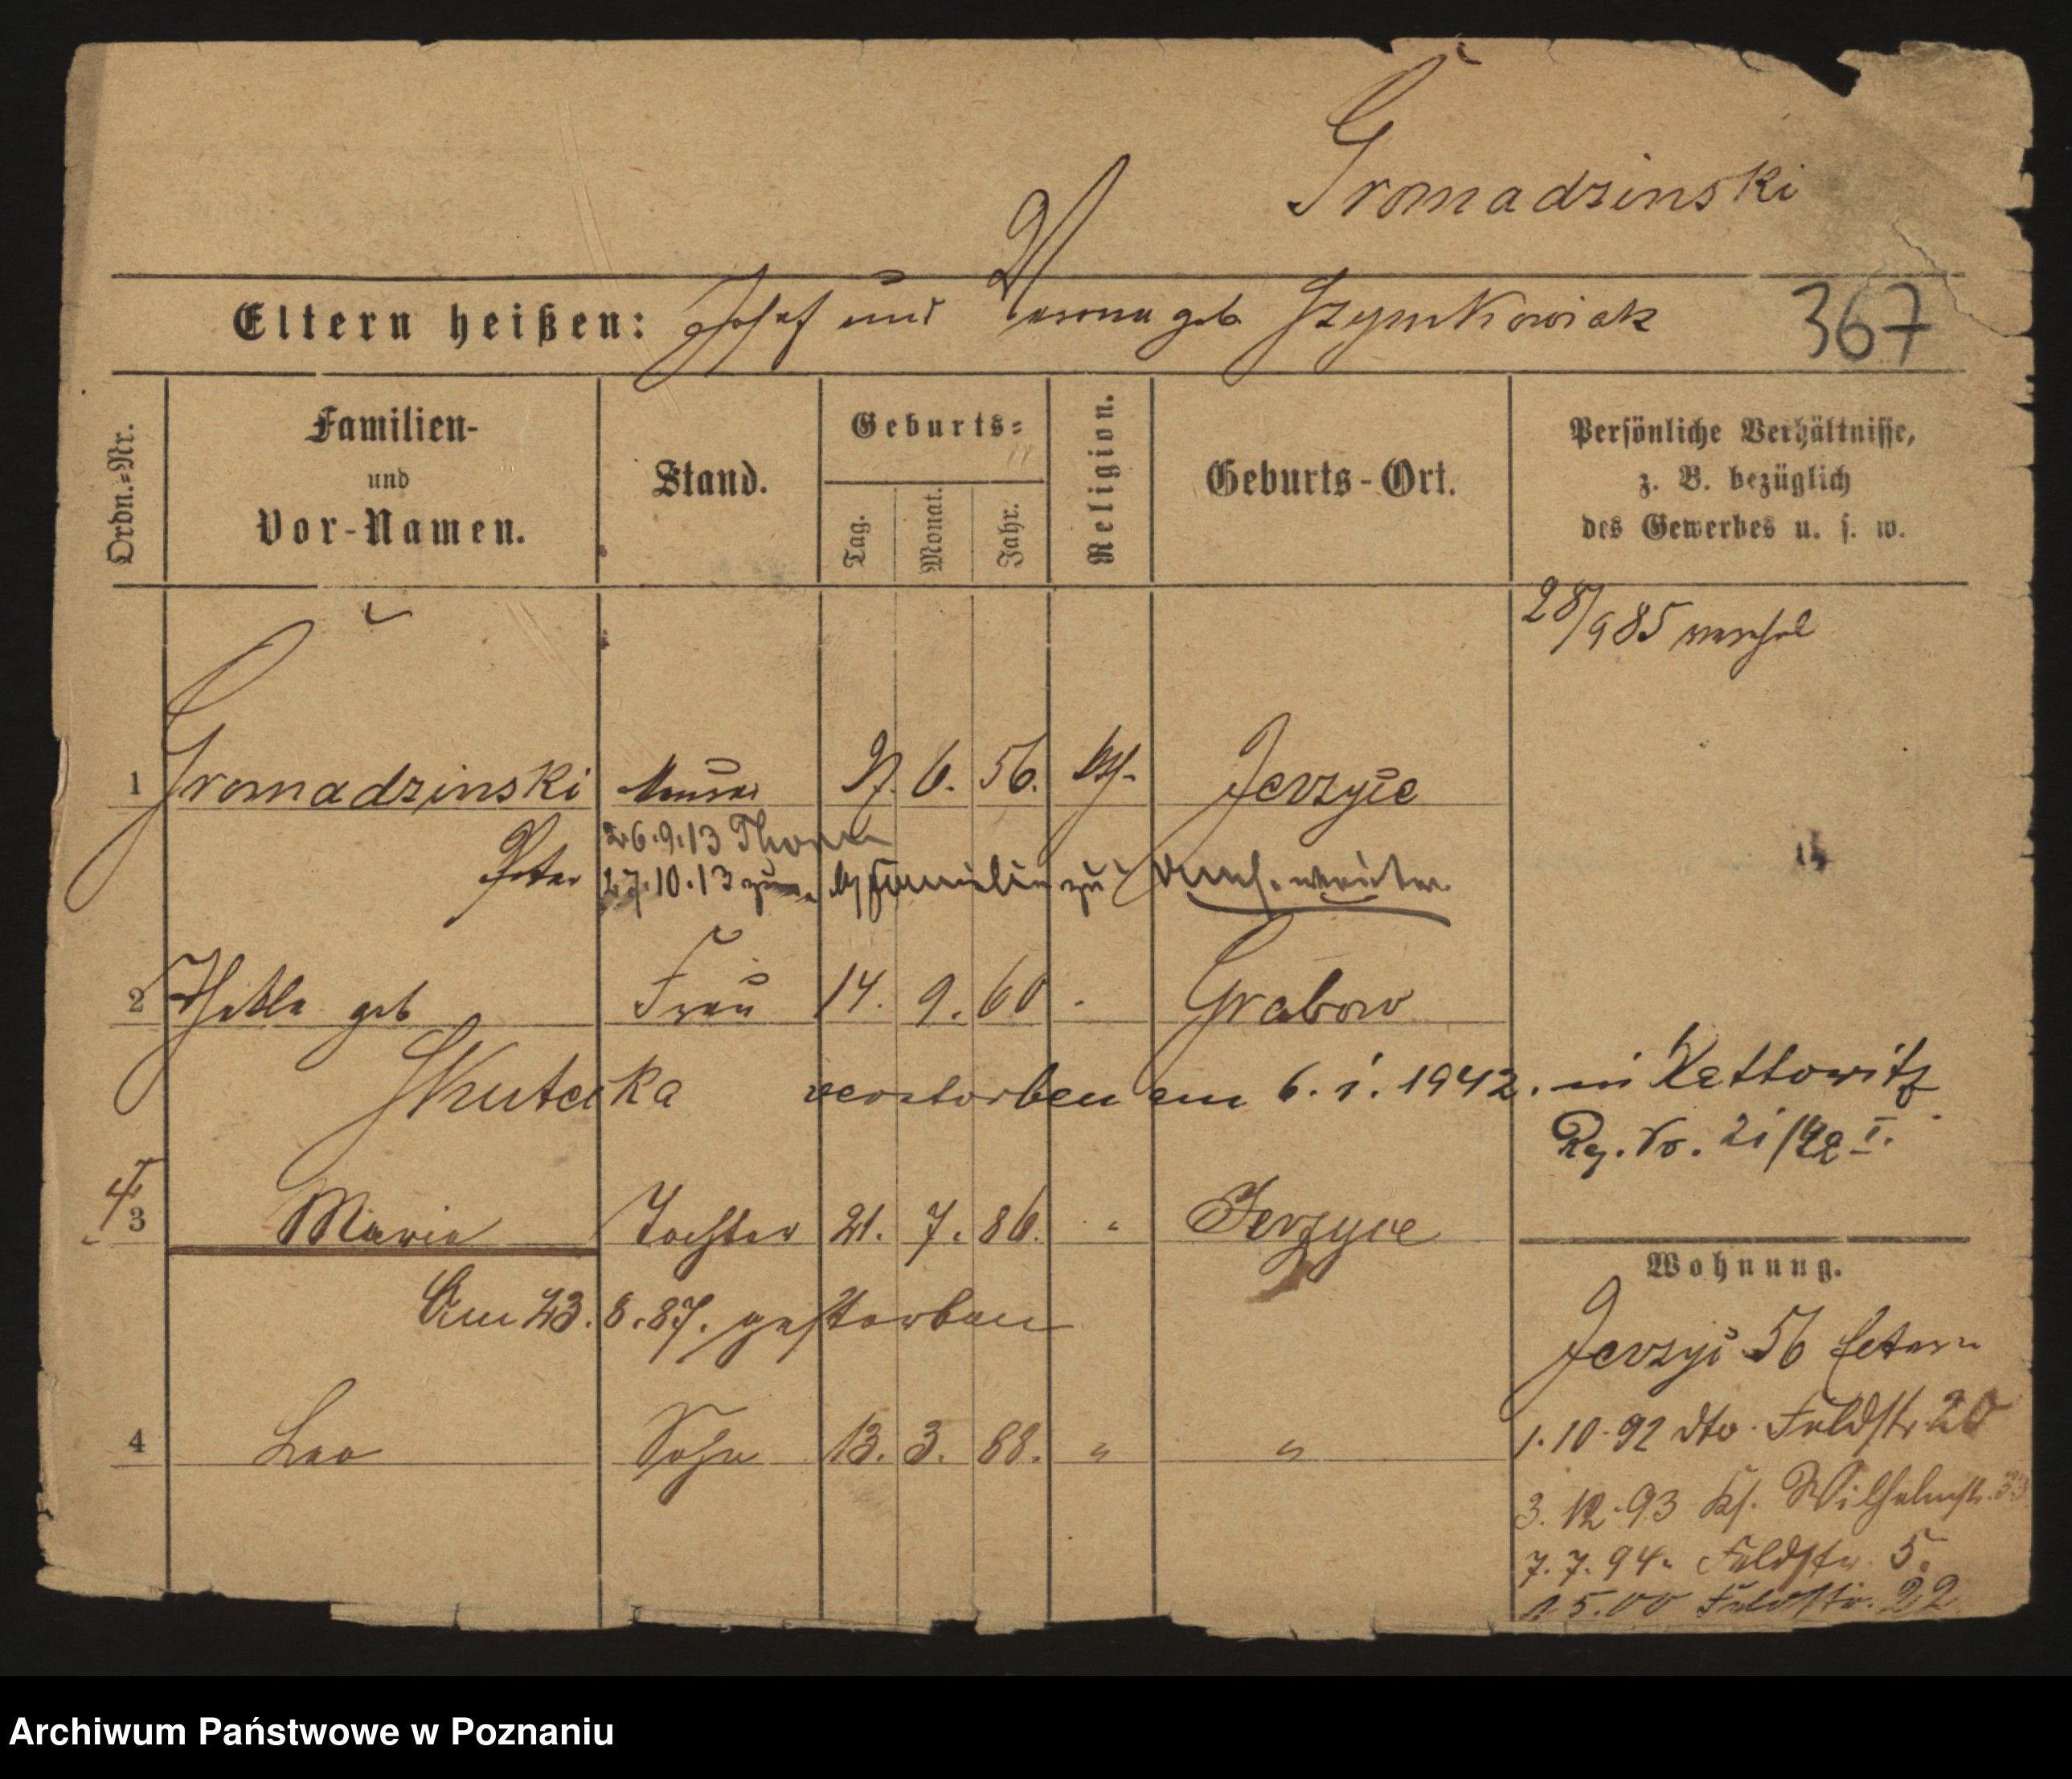 Gromadzinski
Eltern heißen: Josef und geb Szymkowiak
367
Ordn.=Nr.
Familien-
und
Vor-Namen.
Stand.
Geburts=
Tag.
Monat.
Jahr.
Religion.
Geburts-Ort.
Persönliche Verhältnisse,
z. B. bezüglich
des Gewerbes u. s. w.
28/9 85
1 Gromadzinski Maurer 6. 56. kth. Jerzyce
Peter
26.9.13 Thorn
27.10.13 Familie zu
2 Thekla geb Frau 14. 9. 60 Grabow
Skutecka verstorben am 6. 1. 1942. in Kattowitz
Reg. Nr. 21/42 I.
3 Marie Tochter 21. 7. 86. " Jerzyce
Am 23. 8. 87. gestorben
4 Leo Sohn 13. 3. 88. " "
Wohnung.
Jerzyc 56 Eltern
1.10.92 dto. Feldstr 20
3.12.93 Ks. Wilhelmstr. 33
7.7.94. Feldstr. 5.
1.5.00 Feldstr. 22
Archiwum Państwowe w Poznaniu